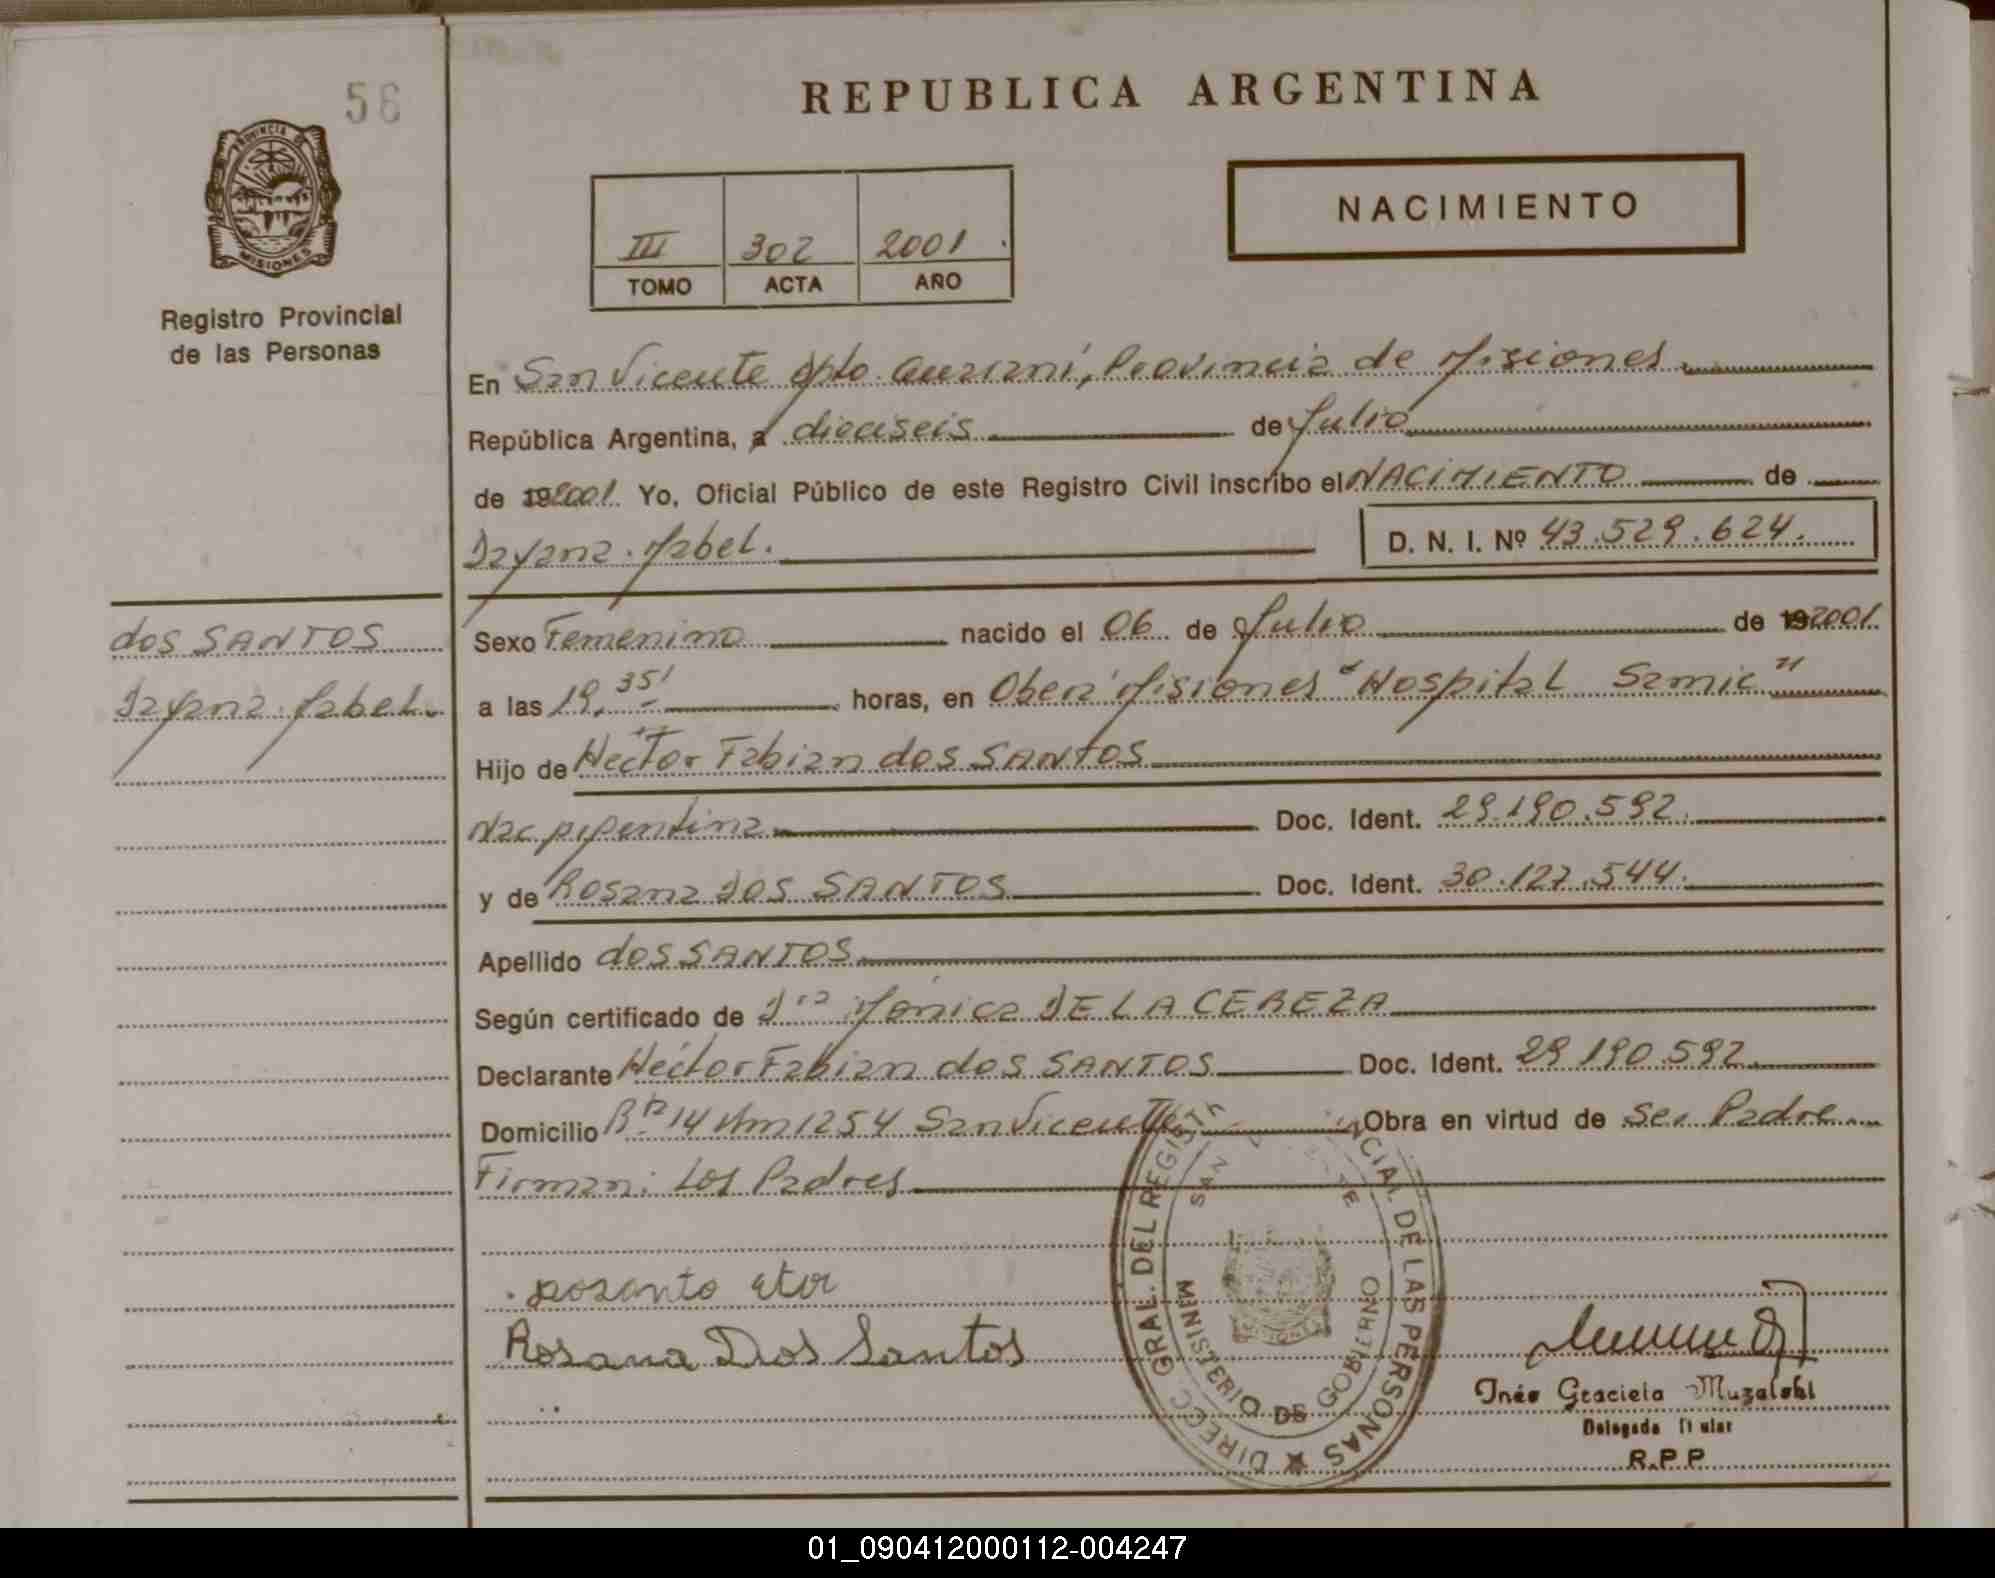 58
REPUBLICA ARGENTINA
PROVINCIA DE
MISIONES
Registro Provincial
de las Personas
III 302 2001
TOMO ACTA AÑO
NACIMIENTO
En San Vicente dpto. Guaraní, Provincia de Misiones
República Argentina, a dieciseis de Julio
de 192001. Yo, Oficial Público de este Registro Civil inscribo el NACIMIENTO de
Dayana Mabel. D. N. I. Nº 43.529.624.
dos SANTOS
Dayana Mabel.
Sexo Femenino nacido el 06 de Julio de 192001.
a las 19,35' horas, en Oberá Misiones "Hospital Samic"
Hijo de Hector Fabian dos SANTOS
Nac Argentina Doc. Ident. 29.190.592.
y de Rosana DOS SANTOS Doc. Ident. 30.127.544.
Apellido dos SANTOS
Según certificado de Dra Mónica DE LA CEREZA
Declarante Héctor Fabian dos SANTOS Doc. Ident. 29.190.592.
Domicilio Rta 14 Km 1254 San Vicente Obra en virtud de Ser Padre
Firman: Los Padres
Rosana Dos Santos
DIRECC. GRAL. DEL REGISTR CIAL DE LAS PERSONAS
SAN TE
MINISTERIO DE GOBIERNO
Inés Graciela Muzalski
Delegada Titular
R.P.P
01_090412000112-004247